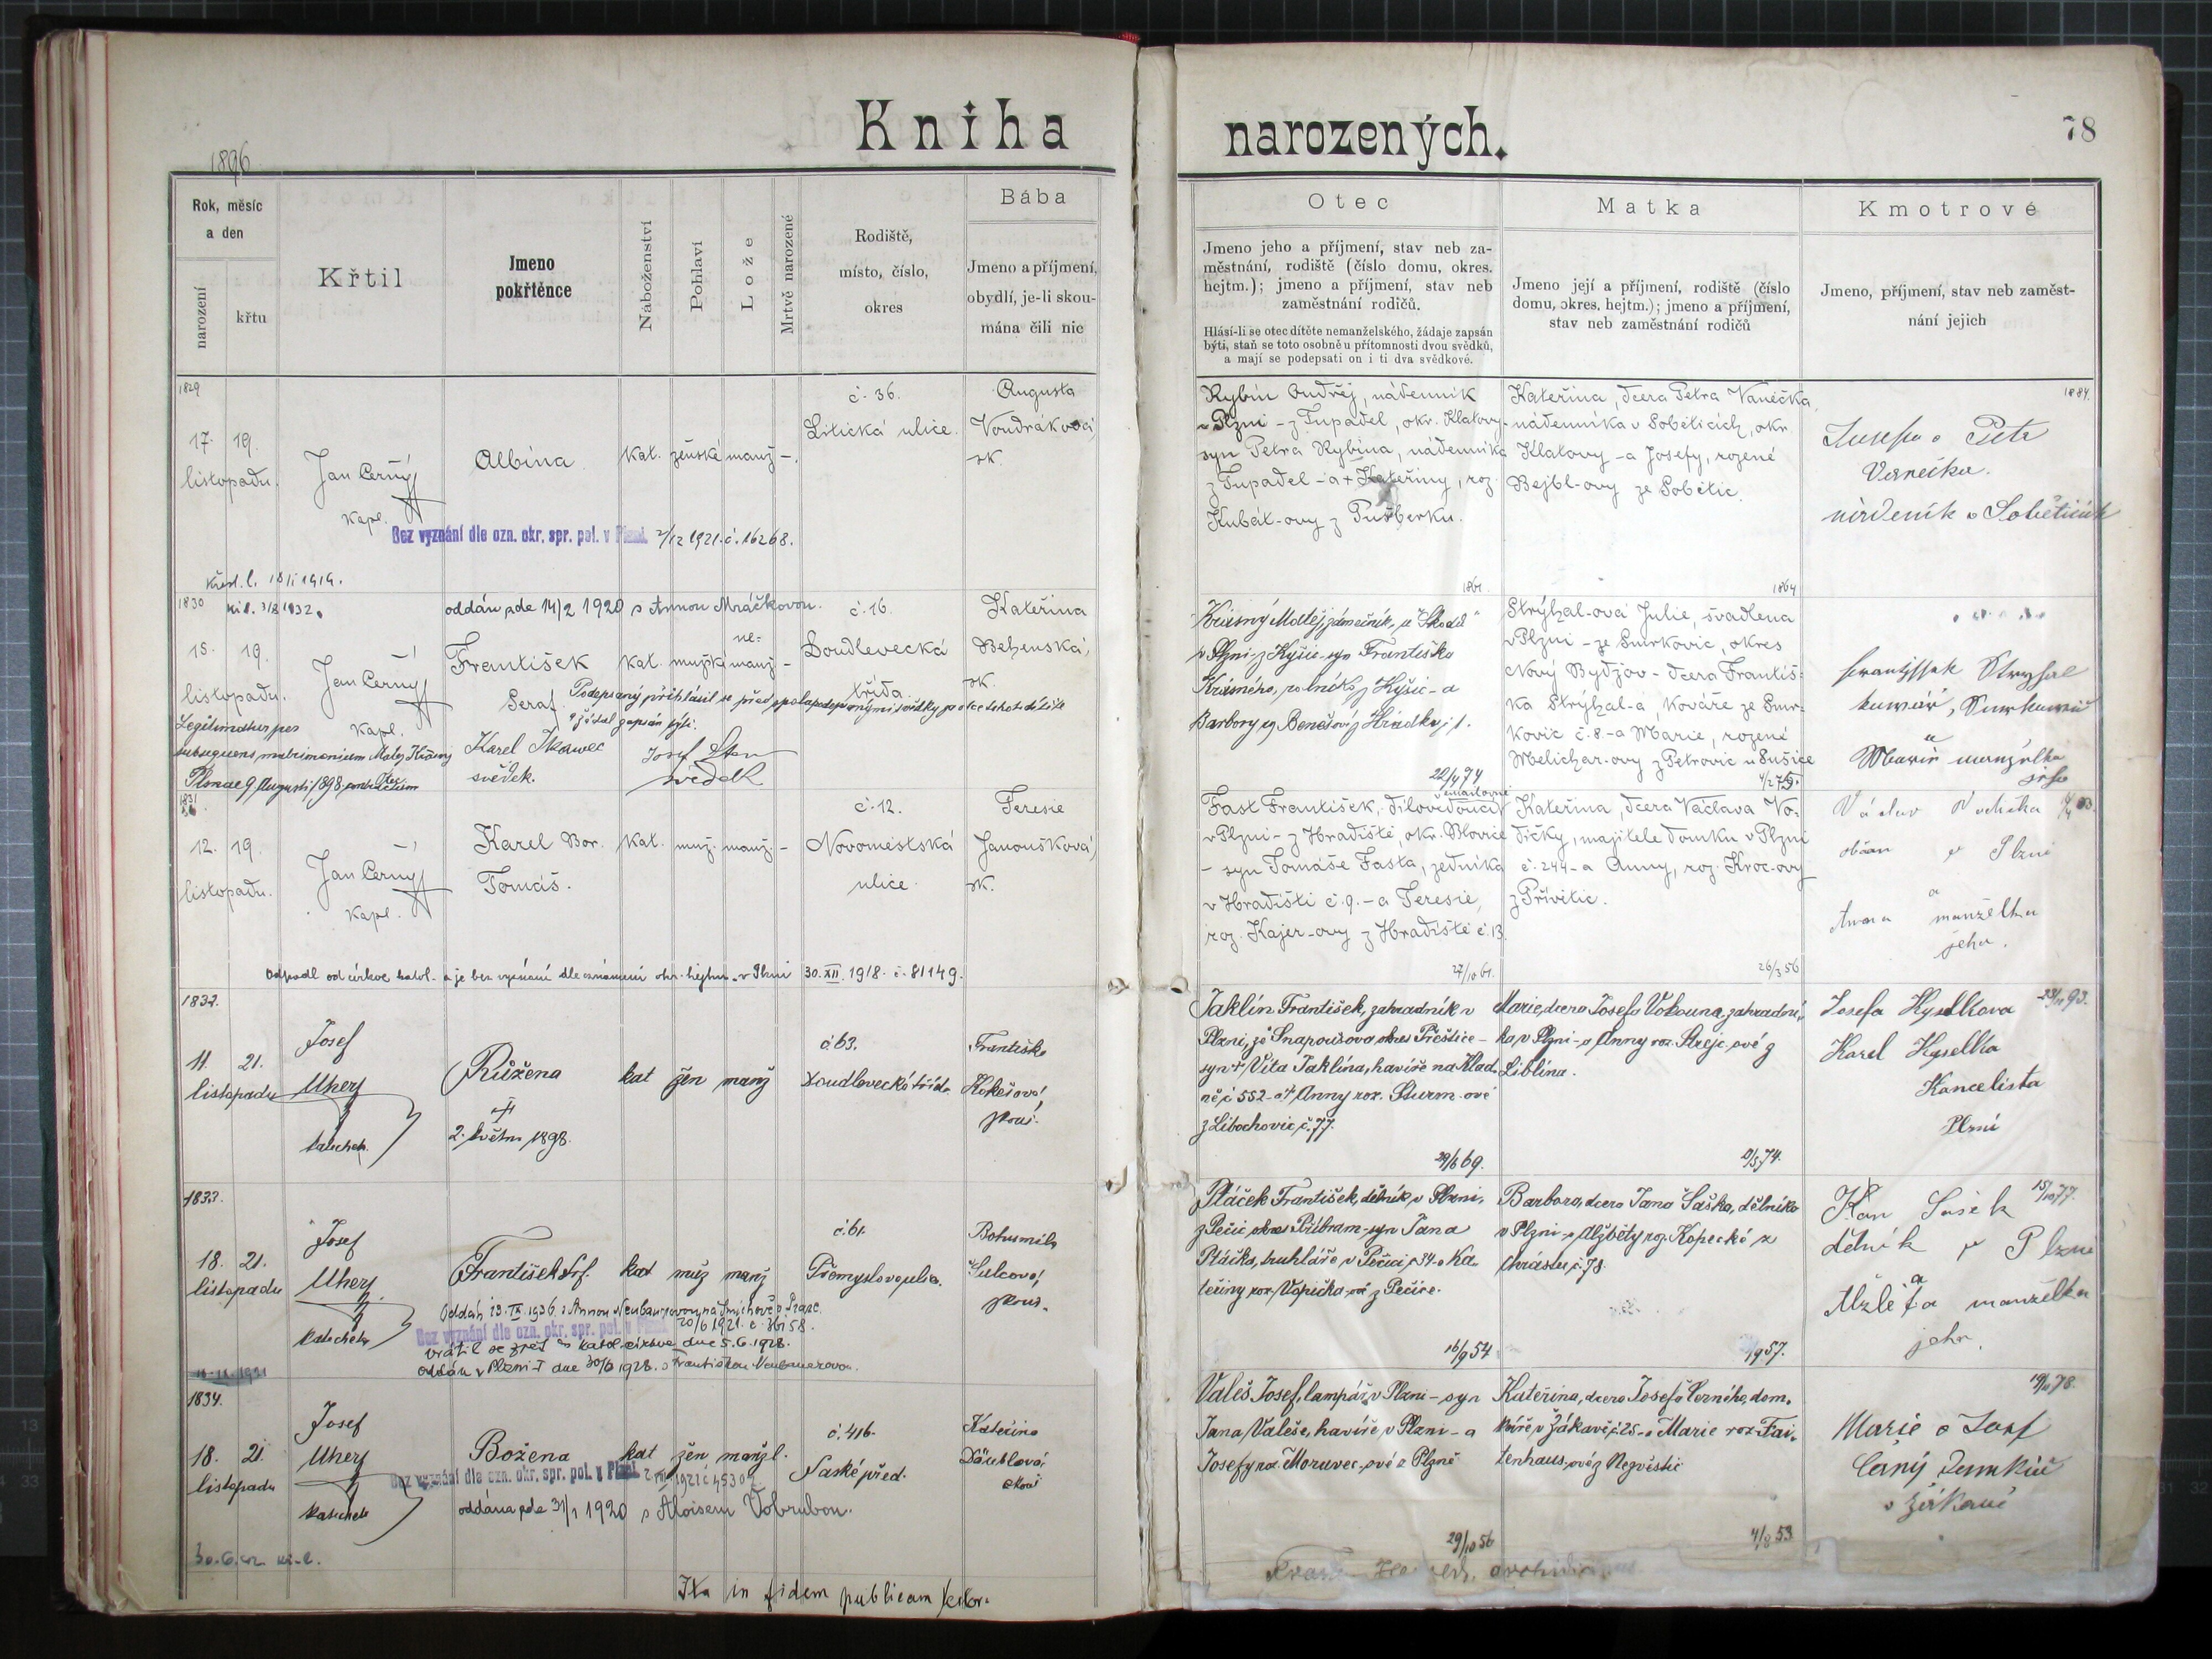 Kniha
narozených.
78
1896
Rok, měsíc
a den
narození
křtu
Křtil
Jmeno
pokřtěnce
Náboženství
Pohlaví
Lože
Mrtvě narozené
Rodiště,
místo, číslo,
okres
Bába
Jmeno a příjmení,
obydlí, je-li skou-
mána čili nic
Otec
Jmeno jeho a příjmení, stav neb za-
městnání, rodiště (číslo domu, okres.
hejtm.); jmeno a příjmení, stav neb
zaměstnání rodičů.
Hlásí-li se otec dítěte nemanželského, žádaje zapsán
býti, staň se toto osobně u přítomnosti dvou svědků,
a mají se podepsati on i ti dva svědkové.
Matka
Jmeno její a příjmení, rodiště (číslo
domu, okres. hejtm.); jmeno a příjmení,
stav neb zaměstnání rodičů
Kmotrové
Jmeno, příjmení, stav neb zaměst-
nání jejich
1829
17. 19.
listopadu.
Jan Černý
kapl.
Albína
kat. ženské manž -.
č. 36.
Litická ulice.
Augusta
Voudráková
zk.
Bez vyznání dle ozn. okr. spr. pol. v Plzni. 7/12 1921. č. 16268.
křest. l. 18/1 1919.
Rybín Ondřej, nádenník
v Plzni - z Tupadel, okr. Klatovy-
syn Petra Rybína, nádenníka
z Tupadel - a + Kateřiny, roz.
Kubát-ovy z Pušberku.
1861.
Kateřina, dcera Petra Vanečka,
nádenníka v Soběticích, okr.
Klatovy - a Josefy, rozené
Bejbl-ovy ze Sobětic.
1864
1884.
Josefa a Petr
Vanečka.
nádeník v Soběticích
1830
oddán zde 14/2 1920 s Annou Mráčkovou.
18. 19.
listopadu.
Jan Černý
kapl.
František
Seraf.
ne-
kat. mužské manž -
č. 16.
Doudlevecká
třída.
Kateřina
Behenská,
zk.
Podepsaný přihlásil se před spolupodepsanými svědky za otce tohoto dítěte
a žádal zapsán býti.
Legitimatur per
subsequens matrimonium Matěj Krásný
Plznae 9. Augusti 1898 contractum
Karel
svědek.
Josef
svědek
Krásný Matěj, zámečník u "Škodů"
v Plzni - z Kyšic - syn Františka
Krásného, rolníka z Kyšic - a
Barbory roz. Benešové z Hrádku č. 1.
22/4 74
Strýhal-ová Julie, švadlena
v Plzni - ze Smrkovic, okres
Nový Bydžov - dcera Františ-
ka Strýhal-a, kováře ze Smr-
kovic č. 8 - a Marie, rozené
Melichar-ovy z Petrovic u Sušice
František Strýhal
kovář, Smrkovic
a
Marie manželka
jeho
1831
12. 19.
listopadu.
Jan Černý
kapl.
Karel Bor.
Tomáš.
kat. muž. manž. -
č. 12.
Novoměstská
ulice.
Teresie
Janoušková,
zk.
Odpadl od církve katol. a je bez vyznání dle oznámení okr. hejtm. v Plzni 30. XII. 1918. č. 81149.
Fast František, dílovedoucí
v Plzni - z Hradiště, okr. Blovice
- syn Tomáše Fasta, zedníka
v Hradišti č. 9. - a Teresie,
roz. Kajer-ovy z Hradiště č. 13.
27/10 61.
Kateřina, dcera Václava Vo-
dičky, majitele domku v Plzni
č. 244 - a Anny, roz. Kroc-ovy
z Přívětic.
26/3 56
Václav Vodička
občan v Plzni
a
Anna manželka
jeho.
1832.
11. 21.
listopadu
Josef
Uherj
katecheta.
Růžena
2. května 1898.
kat žen manž
č 63.
Doudlevecká třída
Františka
Kokešová,
zkouš.
Jaklín František, zahradník v
Plzni, ze Snapoušova okres Přeštice -
syn + Víta Jaklína, havíře na Klad-
ně č. 552 - a + Anny roz. Sturm-ové
z Libochovic č. 77.
29/6 69.
Marie, dcera Josefa Vokouna, zahradní-
ka v Plzni - a Anny roz. Strejc-ové z
Liblína.
2/5 74.
Josefa Kysellova
Karel Kysella
Kancelista
Plzni
1833.
18. 21.
listopadu
Josef
Uherj
katecheta
František Srf.
kat muž manž
č. 61.
Přemyslova ulice.
Bohumila
Šulcová,
zkouš.
Oddán 19. IX. 1936. s Annou Neubauerovou na Smíchově v Praze.
Bez vyznání dle ozn. okr. spr. pol. v Plzni 20/6 1921.
vrátil se zpět do katol. církve dne 5.6.1928.
oddán v Plzni-I dne 30/6 1928. s Františkou Neubauerovou.
Ptáček František, dělník v Plzni,
z Pečic okres Příbram - syn Jana
Ptáčka, truhláře v Pečici č. 34 - a Ka-
teřiny roz. Vopička-ové z Pečice.
16/9 54
Barbora, dcera Jana Šaška, dělníka
v Plzni - a Alžběty roz. Kopecké z
Chrástu č. 78.
1957.
15/10 77.
Jan Šašek
dělník v Plzni
a
Alžběta manželka
jeho.
1834.
18. 21.
listopadu
Josef
Uherj
katecheta
Božena
kat žen manžl.
č. 416.
Saské před.
Kateřina
Däublová,
zkouš
Bez vyznání dle ozn. okr. spr. pol. v Plzni
oddána zde 31/1 1920 s Aloisem Vobrubou.
Valeš Josef, lampář v Plzni - syn
Jana Valeše, havíře v Plzni - a
Josefy roz. Moravec-ové z Plzně
29/10 56
Kateřina, dcera Josefa Černého, dom-
káře v Žákavě č. 25 - a Marie roz. Fai-
tenhaus-ové z Nezvěstic
4/8 53.
19/11 78.
Marie a Josef
Černý domkář
v Žákavě
Ita in fidem publicam